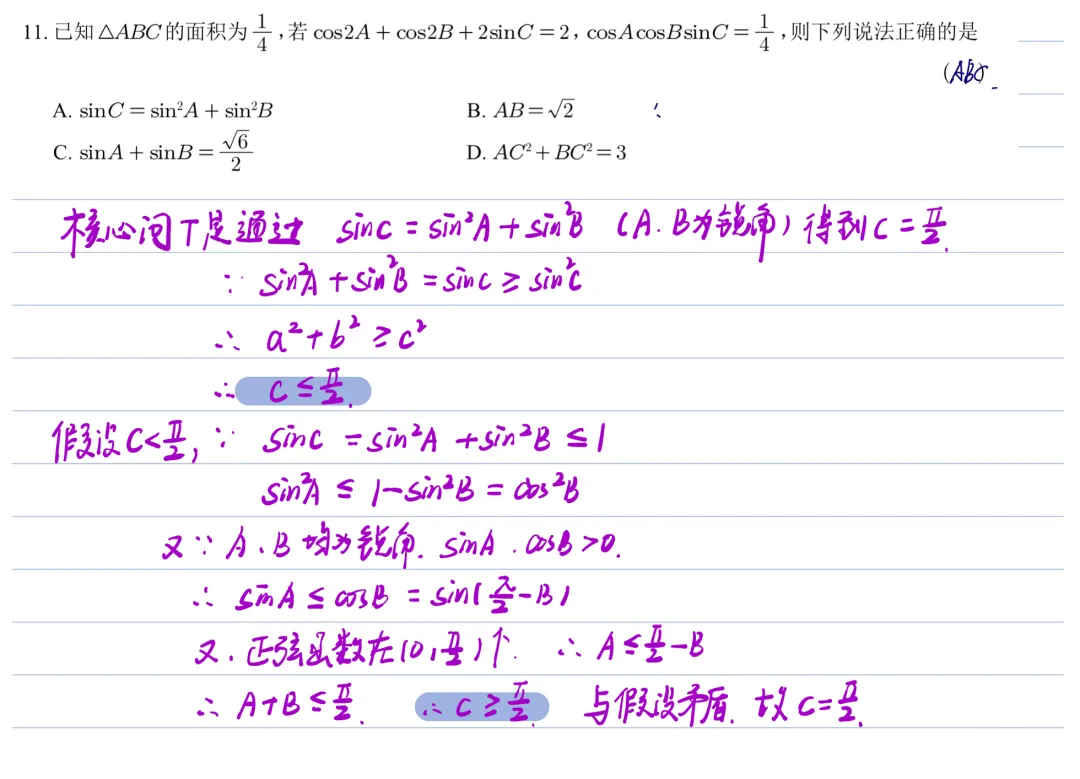 11. 已知△ABC的面积为1/4,若 cos2A + cos2B + 2sinC = 2, cosAcosBsinC = 1/4,则下列说法正确的是
(ABC)
A. sinC = sin²A + sin²B B. AB = √2
C. sinA + sinB = √6/2 D. AC² + BC² = 3
核心问T是通过 sinC = sin²A + sin²B (A.B为锐角) 得到C = π/2.
∵ sin²A + sin²B = sinC ≥ sin²C
∴ a² + b² ≥ c²
∴ C ≤ π/2.
假设C < π/2, ∵ sinC = sin²A + sin²B ≤ 1
sin²A ≤ 1 - sin²B = cos²B
又∵ A、B 均为锐角. sinA . cosB > 0.
∴ sinA ≤ cosB = sin(π/2 - B)
又. 正弦函数在(0, π/2)↑. ∴ A ≤ π/2 - B
∴ A+B ≤ π/2. ∴ C ≥ π/2. 与假设矛盾. 故C = π/2.